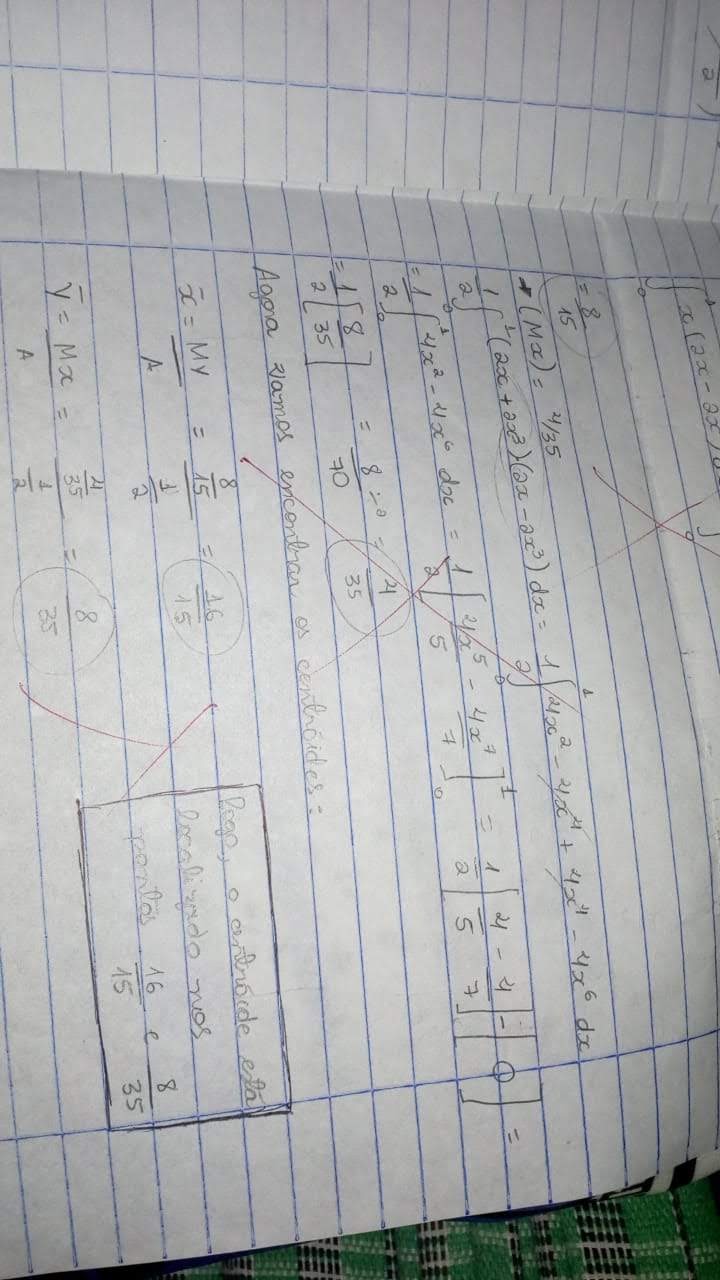 ∫₀¹ x(2x - 2x
= 8/15
→ (Mx) = 4/35
1/2 ∫₀¹ (2x + 2x³)·(2x - 2x³) dx = 1/2 ∫₀¹ 4x² - 4x⁴ + 4x⁴ - 4x⁶ dx
= 1/2 ∫₀¹ 4x² - 4x⁶ dx = 1/2 [4x⁵/5 - 4x⁷/7]₀¹ = 1/2 [4/5 - 4/7] - [0] =
= 1/2 [8/35] = 8/70 ÷² = 4/35
Agora vamos encontrar os centróides:
x̄ = My/A = 8/15 / 1/2 = 16/15
Logo, o centróide está
localizado nos
pontos 16/15 e 8/35
Ȳ = Mx/A = 4/35 / 1/2 = 8/35